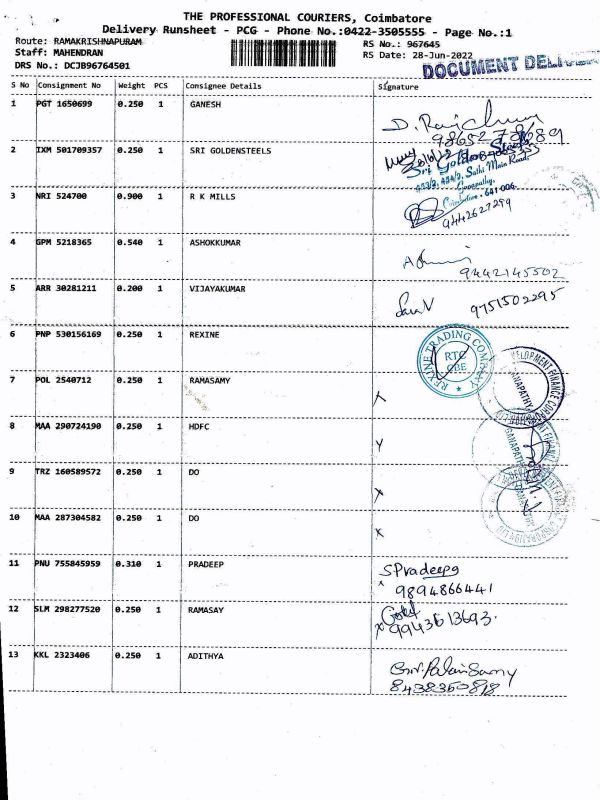 THE PROFESSIONAL COURIERS, Coimbatore
Delivery Runsheet - PCG - Phone No.:0422-3505555 - Page No.:1
Route: RAMAKRISHNAPURAM
RS No.: 967645
Staff: MAHENDRAN
RS Date: 28-Jun-2022
DRS No.: DCJB96764501
DOCUMENT
S No Consignment No Weight PCS Consignee Details Signature
1 PGT 1650699 0.250 1 GANESH
2 IXM 501709357 0.250 1 SRI GOLDENSTEELS
Sri Golden Steels
453/2, 454/2, Sathi Main Road,
Ganapathy,
Coimbatore - 641 006.
3 NRI 524700 0.900 1 R K MILLS
9442627299
4 GPM 5218365 0.540 1 ASHOKKUMAR
9442145502
5 ARR 30281211 0.200 1 VIJAYAKUMAR
9751502295
6 PNP 530156169 0.250 1 REXINE
REXINE TRADING COMPANY
RTC
CBE
7 POL 2540712 0.250 1 RAMASAMY
GANAPATHY
8 MAA 290724190 0.250 1 HDFC
GANAPATHY
9 TRZ 160589572 0.250 1 DO
10 MAA 287304582 0.250 1 DO
11 PNU 755845959 0.310 1 PRADEEP
SPradeep
9894866441
12 SLM 298277520 0.250 1 RAMASAY
9943613693
13 KKL 2323406 0.250 1 ADITHYA
8438350818